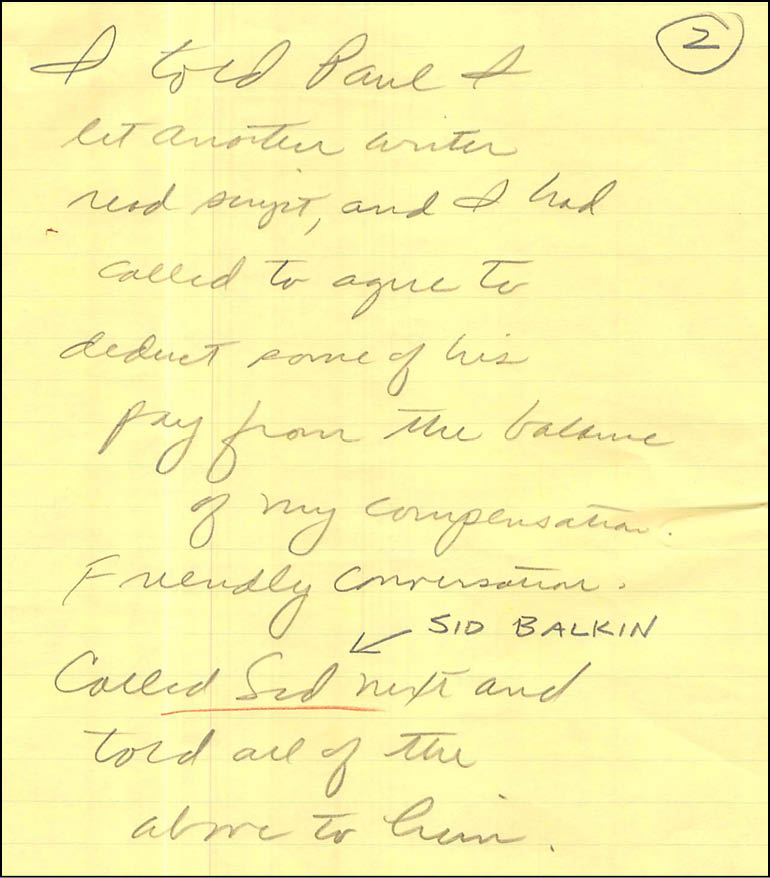 2
I told Paul I
let another writer
read script, and I had
called to agree to
deduct some of his
pay from the balance
of my compensation.
Friendly conversation.
SID BALKIN
Called Sid next and
told all of the
above to him.